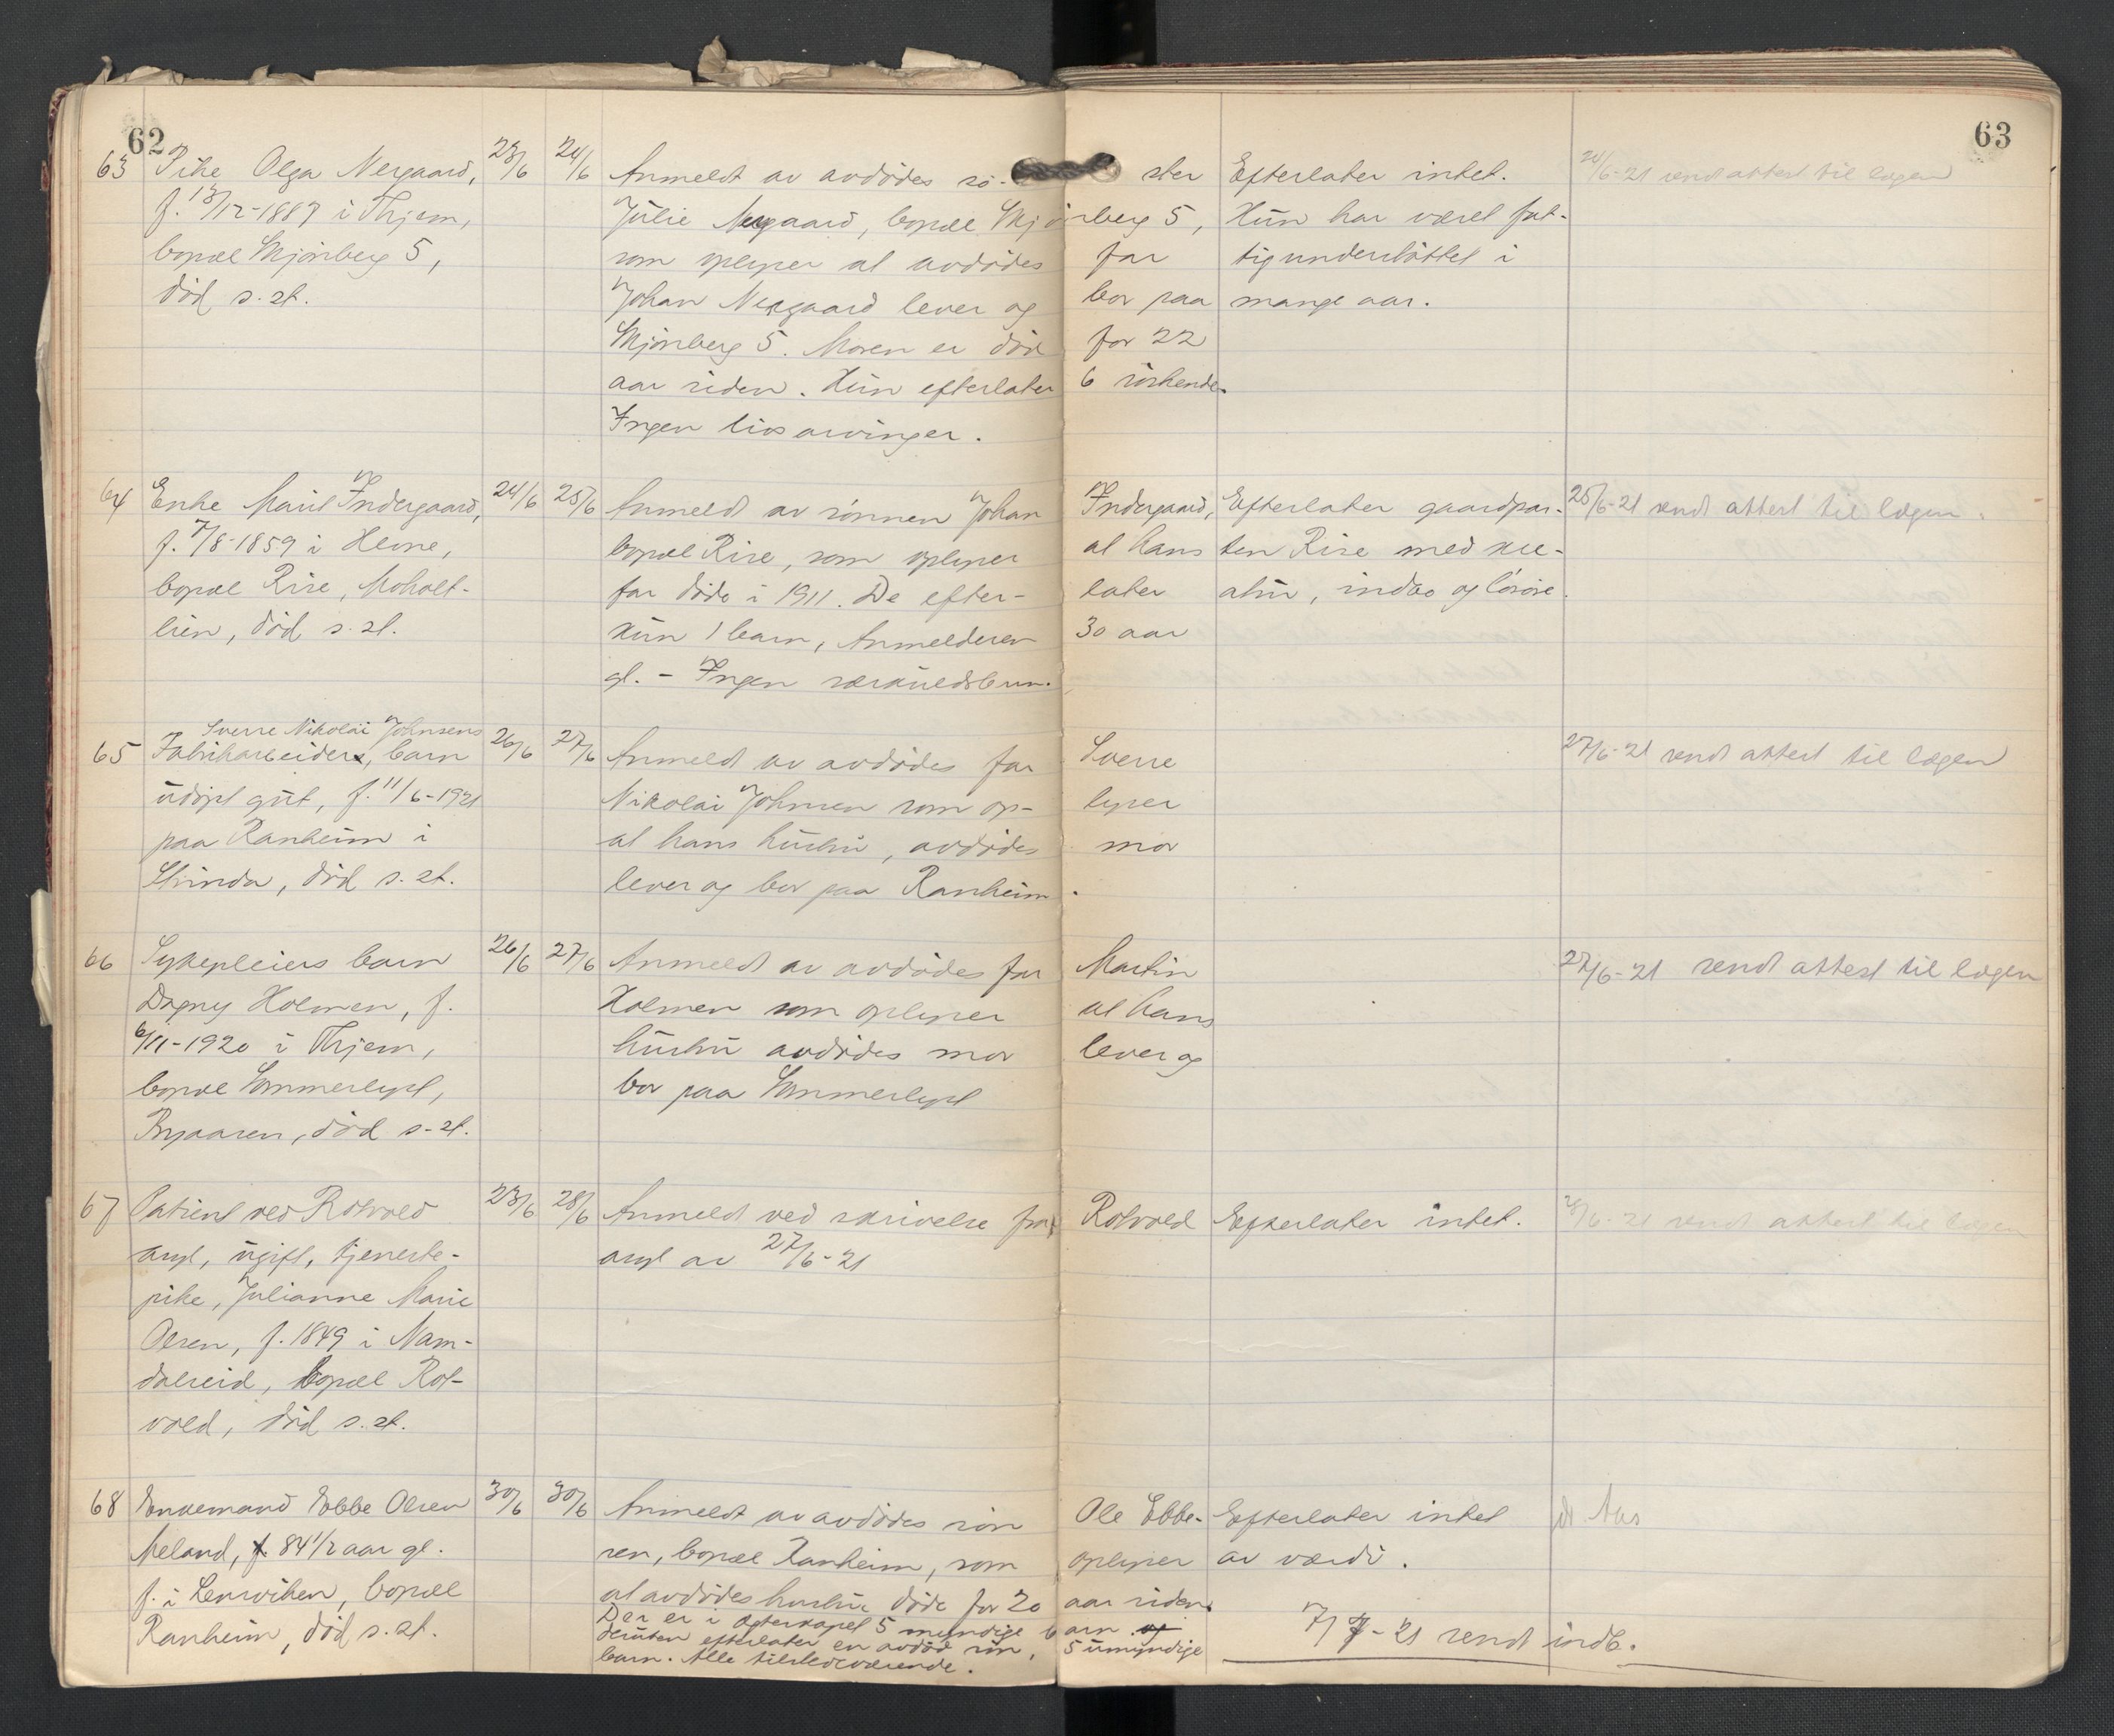 62
63
63 Pike Olga Nergaard, 23/6 24/6 Anmeldt av avdødes sø- ster Efterlater intet. 24/6-21 sendt attest til lægen
f. 13/12-1887 i Thjem, Julie Nergaard, bopæl Skjønberg 5, Hun har været fat-
bopæl Skjønberg 5, som oplyser at avdødes far tigunderstøttet i
død s. st. Johan Nergaard lever og bor paa mange aar.
Skjønberg 5. Moren er død for 22
aar siden. Hun efterlater 6 søskende.
Ingen livsarvinger.
64 Enke Marit Indergaard, 24/6 25/6 Anmeldt av sønnen Johan Indergaard, Efterlater gaardpar- 25/6-21 sendt attest til lægen.
f. 7/8-1859 i Hevne, bopæl Rise, som oplyser at hans ten Rise med kre-
bopæl Rise, Moholt- far døde i 1911. De efter- later atur, indbo og løsøre.
lien, død s. st. Hun 1 barn, Anmelderen 30 aar
gl. - Ingen særkuldsbarn.
Sverre Nikolai Johnsens
65 Fabrikarbeider, barn 26/6 27/6 Anmeldt av avdødes far Sverre 27/6-21 sendt attest til lægen
udøpt gut, f. 11/6-1921 Nikolai Johnsen som op- lyser
paa Ranheim i at hans hustru, avdødes mor
Strinda, død s. st. lever og bor paa Ranheim.
66 Sykepleiers barn 26/6 27/6 Anmeldt av avdødes far Martin 27/6-21 sendt attest til lægen
Dagny Holmen, f. Holmen som oplyser at hans
6/11-1920 i Thjem, hustru avdødes mor lever og
bopæl Sommerlyst, bor paa Sommerlyst
Byaasen, død s. st.
67 Patient ved Rotvold 23/6 28/6 Anmeldt ved skrivelse fra Rotvold Efterlater intet. 28/6-21 sendt attest til lægen
asyl, ugift, tjeneste- asyl av 27/6-21
pike, Julianne Marie
Olsen, f. 1849 i Nam-
dalseid, bopæl Rot-
vold, død s. st.
68 Enkemand Ebbe Olsen 30/6 30/6 Anmeldt av avdødes søn Ole Ebbe- Efterlater intet
Meland, 84 1/2 aar gl. sen, bopæl Ranheim, som oplyser av værdi.
f. i Lensviken, bopæl at avdødes hustru døde for 20 aar siden.
Ranheim, død s. st. Der er i egteskapet 5 myndige barn. og
desuten efterlater en avdød søn, 5 umyndige
barn. Alle tilstedeværende.
7/7-21 sendt indb.